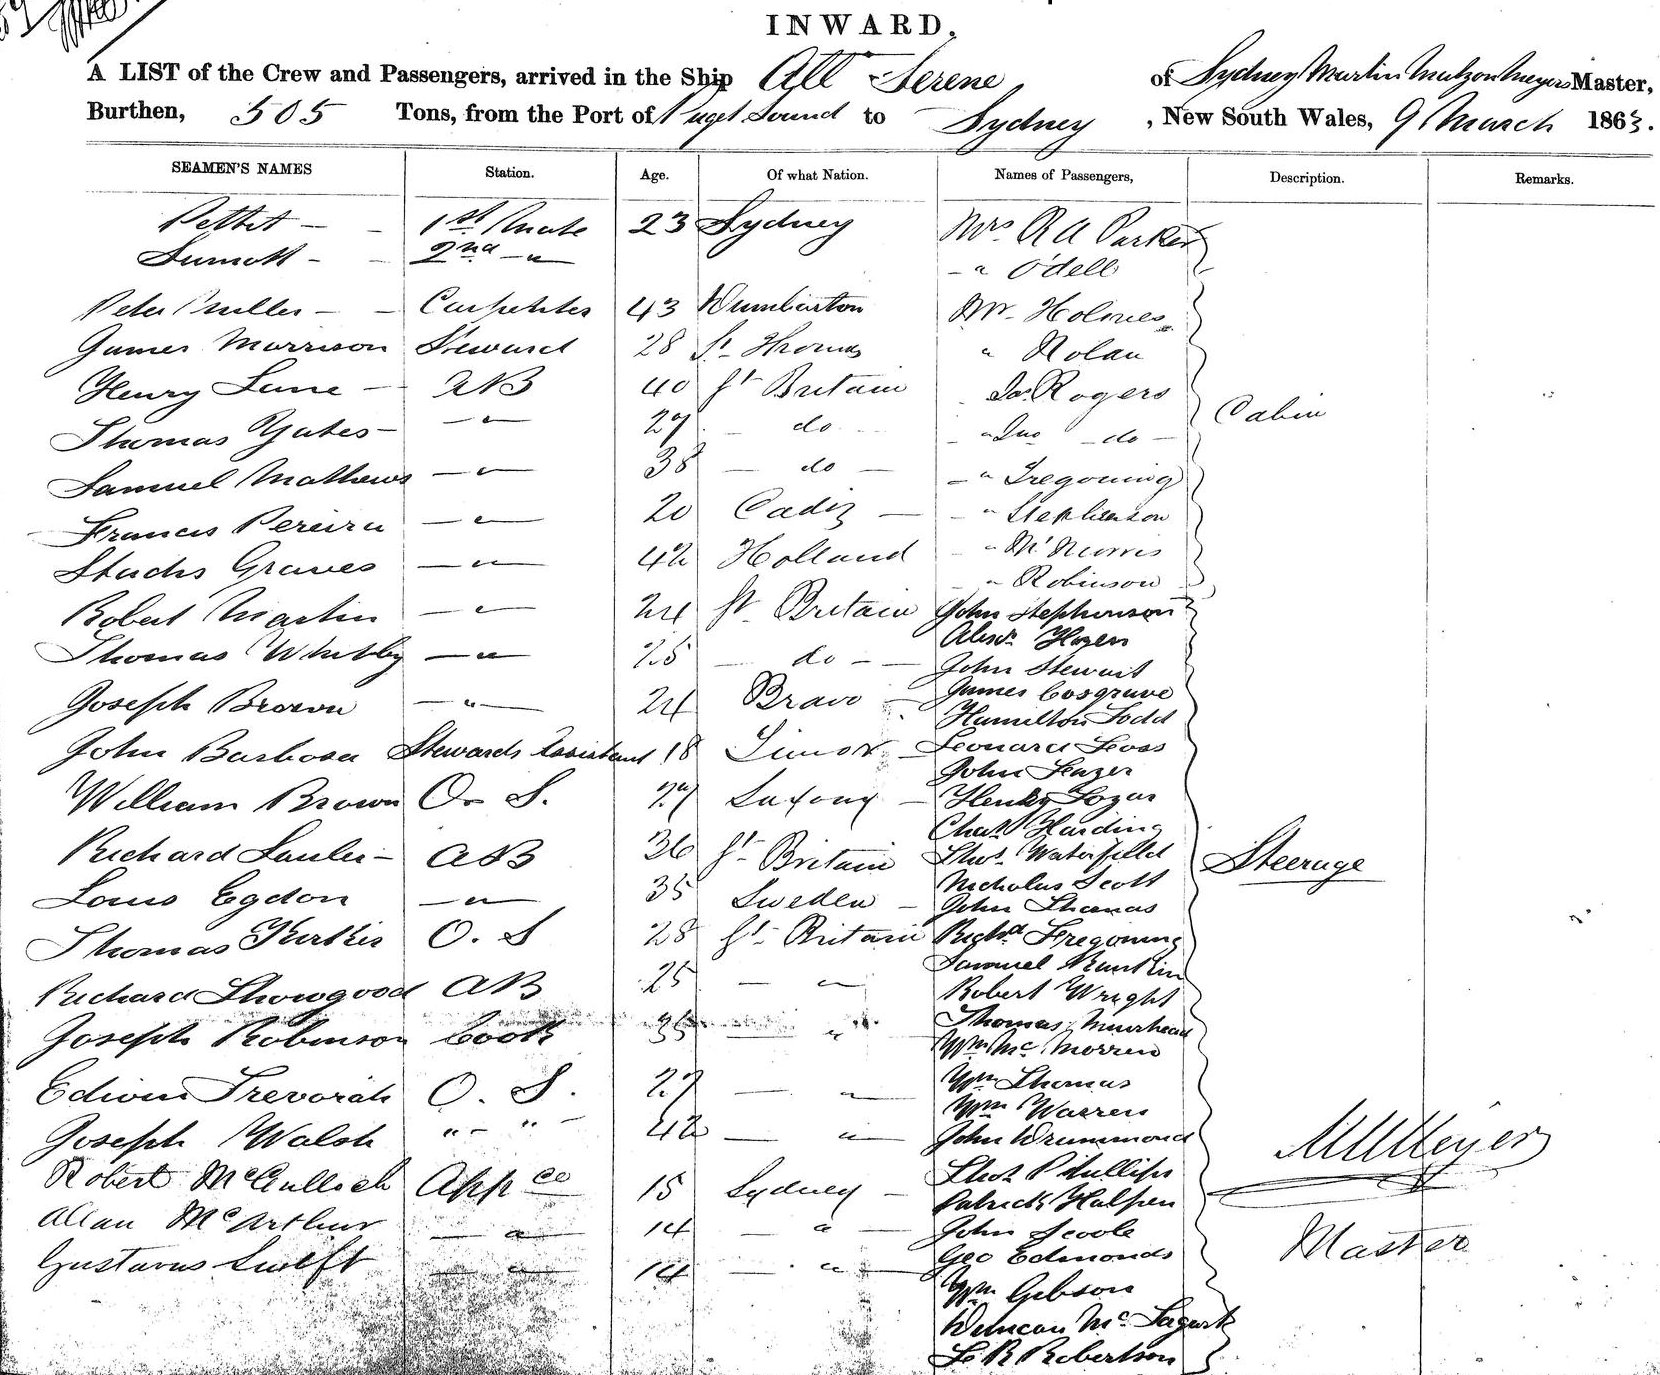 INWARD.
A LIST of the Crew and Passengers, arrived in the Ship All Serene of Sydney Martin Meyer Master,
Burthen, 505 Tons, from the Port of Puget Sound to Sydney, New South Wales, 9 March 1863.
SEAMEN'S NAMES Station. Age. Of what Nation. Names of Passengers, Description. Remarks.
Pettit - - 1st Mate 23 Sydney Mrs R A Parker
- - 2nd - " - " Odell
Peter Miller - - Carpenter 43 Dumbarton Mr Holmes
James Morrison Steward 28 St Thomas " Nolan
Henry Lane - AB 40 Gt Britain Jas. Rogers
Thomas Yates - - " - 27 - do - " Jno - do - Cabin
Samuel Mathews - " - 38 - do - - " Tregoning
Francis Pereira - " - 20 Cadiz - - " Stephenson
Graves - " - 42 Holland - " McNorris
" Robinson
Robert Martin - " - 24 Gt Britain John Stephenson
Alexr Hogen
Thomas Whitby - " - 25 - do - - John Stewart
Joseph Brown - " - 24 Bravo - James Cosgrave
Hamilton Todd
John Barbosa Stewards Assistant 18 Timor - Leonard Foss
John
William Brown O S. 27 Saxony - Henry
Chas Harding
Richard - AB 36 Gt Britain Thos. Waterfield Steerage
Nicholas Scott
Louis Egdon - " - 35 Sweden - John Thomas
Thomas O. S 28 Gt Britain Richd Tregoning
Samuel
Richard Thowgood AB 25 - " - Robert Wright
Thomas Muirhead
Joseph Robinson Cook 35 - " Wm Mc Morren
Edwin Trevorah O. S. 27 - " - Wm Thomas
Wm Warren
Joseph Walsh " - " - 42 - " - John Drummond
M M Meyer
Robert McCulloch Appce 15 Sydney - Thos Phillips
Patrick Halpen
Allan McArthur - " - 14 - " - John Scoble
Master
Gustavus Swift - " - 14 - " - Geo Edmonds
Wm Gibson
Duncan Mc
Robertson